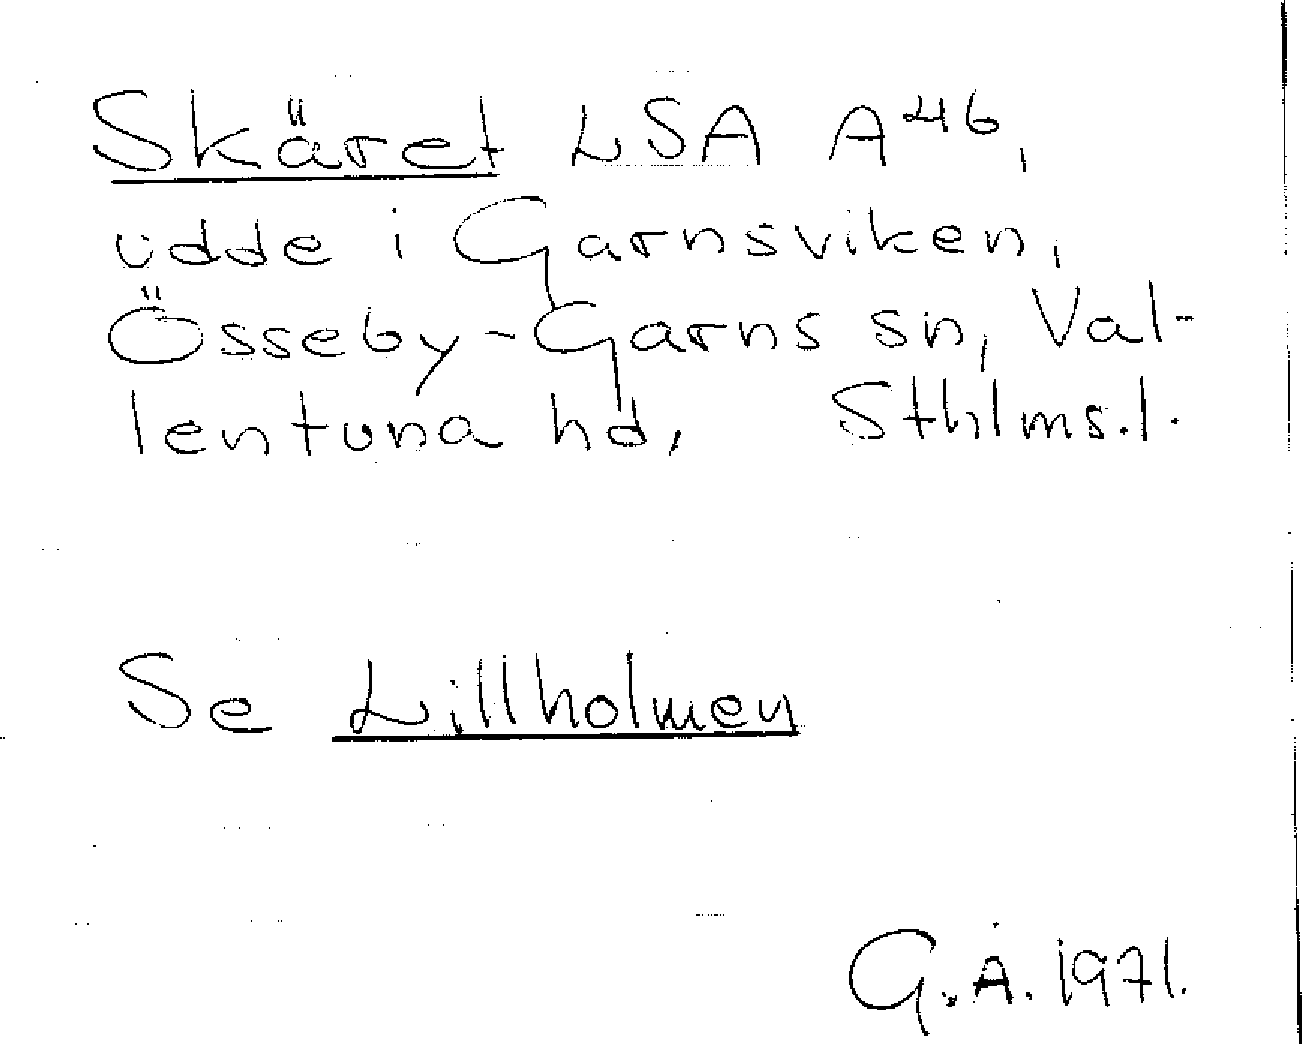 Skäret LSA A46,
udde i Garnsviken,
Össeby-Garns sn, Val-
lentuna hd, Sthlms.l.
Se Lillholmen
G.Å. 1971.